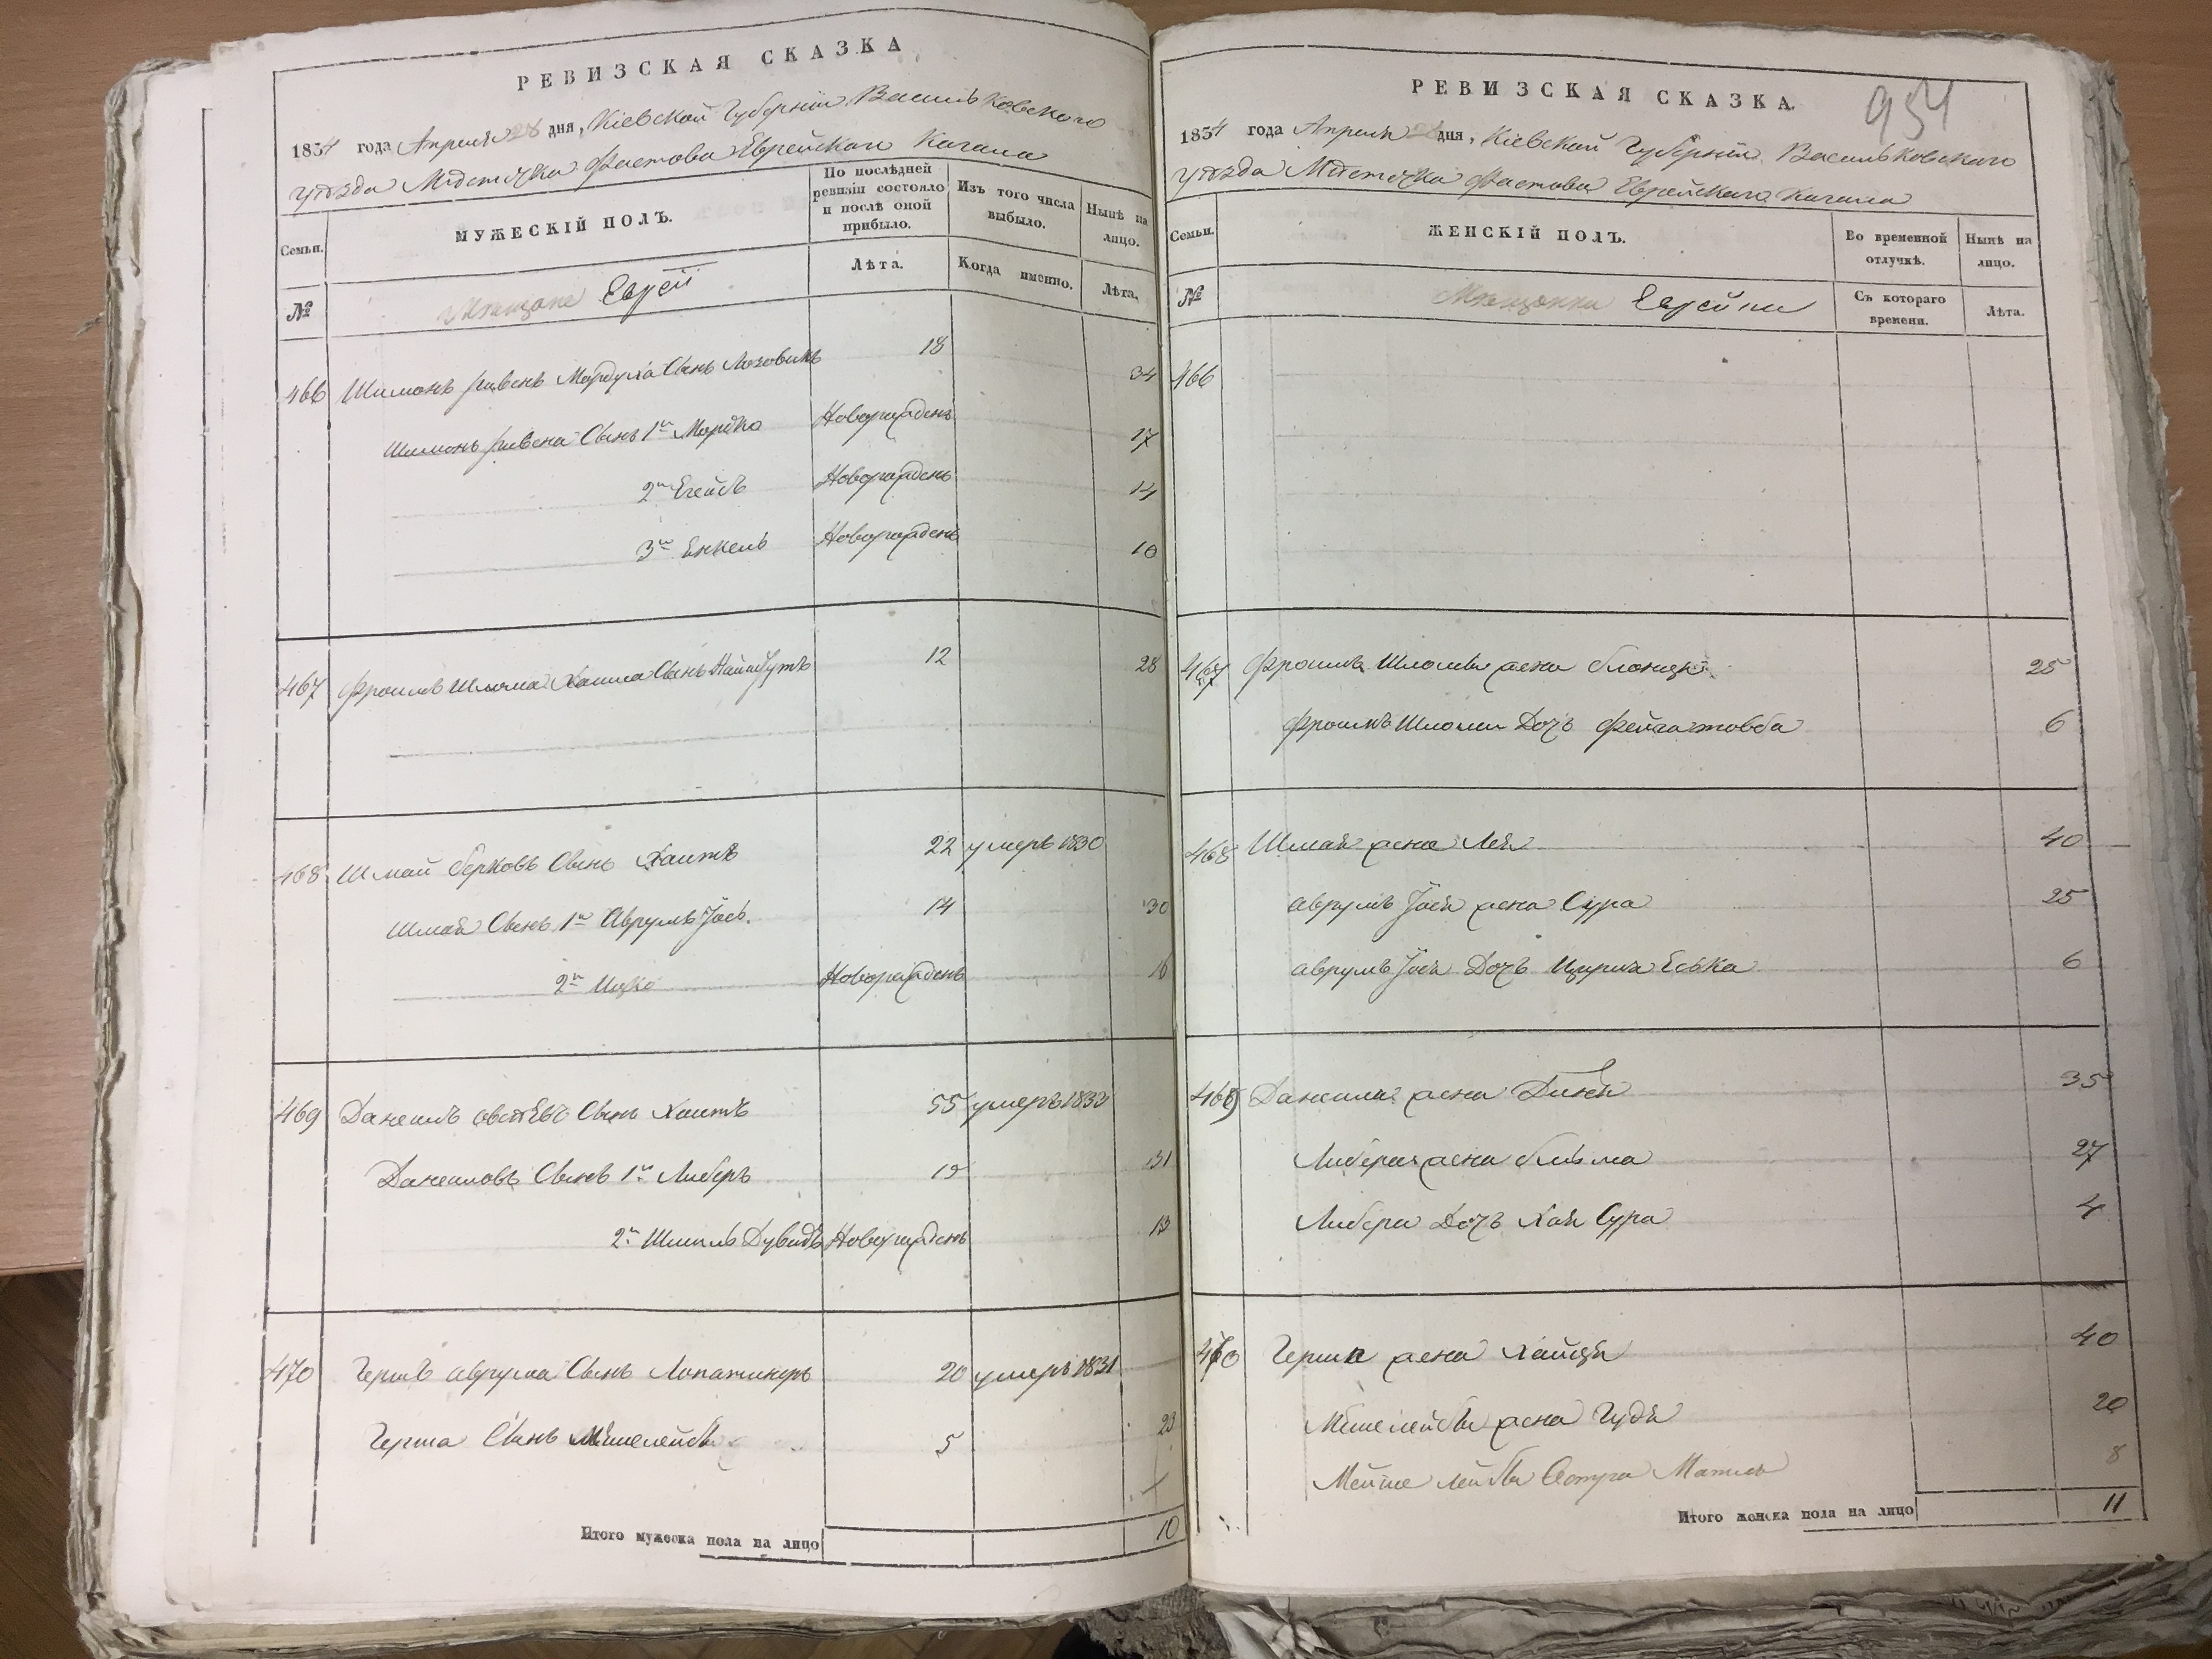 РЕВИЗСКАЯ СКАЗКА
1834 года Апреля 28 дня, Кіевской Губерніи Васильковского
уѣзда Мѣстечка Фастова Еврейскаго Кагала
Семьи.
МУЖЕСКІЙ ПОЛЪ.
По послѣдней ревизіи состояло и послѣ оной прибыло.
Изъ того числа выбыло.
Нынѣ на лицо.
№
Мѣщане Евреи
Лѣта.
Когда именно.
Лѣта.
466 Шимонъ Мордуха Сынъ 18 34
Шимонъ Сынъ 1й Мордко Новорожденъ 17
2й Новорожденъ 14
3й Енкель Новорожденъ 10
467 Фроимъ Шлома Хаима Сынъ 12 28
468 Шмай Берковъ Сынъ Хаитъ 22 умеръ 1830
Шмая Сынъ 1й Аврумъ Іось. 14 30
2й Ицко Новорожденъ 16
469 Данеилъ Сынъ Хаитъ 55 умеръ 183
Данеиловъ Сынъ 1й Либеръ 15 31
2й Шмиль Дувидъ Новорожденъ 13
470 Гершъ Аврума Сынъ Лопатинеръ 20 умеръ 1831
Герша Сынъ 5 2
Итого мужеска пола на лицо 10
954
РЕВИЗСКАЯ СКАЗКА.
1834 года Апреля 28 дня, Кіевской Губерніи Васильковского
уѣзда Мѣстечка Фастова Еврейскаго Кагала
Семьи.
ЖЕНСКІЙ ПОЛЪ.
Во временной отлучкѣ.
Нынѣ на лицо.
№
Мѣщанки Еврейки
Съ котораго времени.
Лѣта.
466
467 Фроимъ Шломы жена 25
Фроимъ Шломы Дочь Фейга 6
468 Шмая жена Лея 40
Аврумъ Іося жена Сура 25
Аврумъ Іося Дочь 6
469 Данеила жена 35
Либера жена 27
Либера Дочь Хая Сура 4
470 Герша жена Хайця 40
жена Гудя 20
8
Итого женска пола на лицо 11